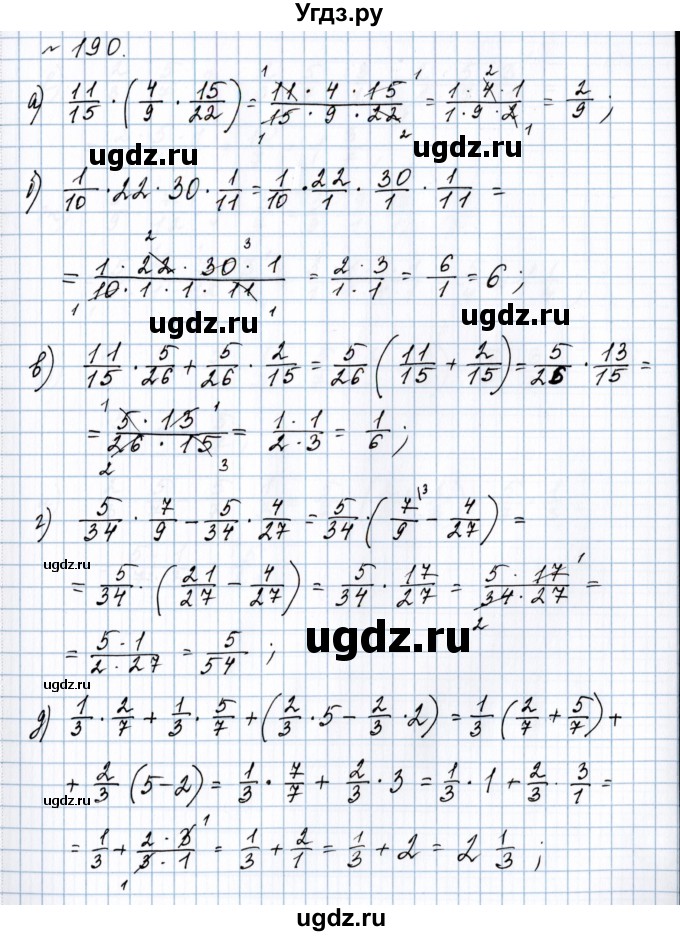 Угдз.ру
№ 190.
а) 11/15 · (4/9 · 15/22) = (11 · 4 · 15)/(15 · 9 · 22) = (1 · 4 · 1)/(1 · 9 · 2) = 2/9 ;
ugdz.ru ugdz.ru
б) 1/10 · 22 · 30 · 1/11 = 1/10 · 22/1 · 30/1 · 1/11 =
= (1 · 22 · 30 · 1)/(10 · 1 · 1 · 11) = (2 · 3)/(1 · 1) = 6/1 = 6 ;
ugdz.ru
в) 11/15 · 5/26 + 5/26 · 2/15 = 5/26 (11/15 + 2/15) = 5/26 · 13/15 =
= (5 · 13)/(26 · 15) = (1 · 1)/(2 · 3) = 1/6 ;
г) 5/34 · 7/9 − 5/34 · 4/27 = 5/34 · (7/9 − 4/27) =
ugdz.ru
= 5/34 · (21/27 − 4/27) = 5/34 · 17/27 = (5 · 17)/(34 · 27) =
ugdz.ru
= (5 · 1)/(2 · 27) = 5/54 ;
ugdz.ru
д) 1/3 · 2/7 + 1/3 · 5/7 + (2/3 · 5 − 2/3 · 2) = 1/3 (2/7 + 5/7) +
+ 2/3 (5 − 2) = 1/3 · 7/7 + 2/3 · 3 = 1/3 · 1 + 2/3 · 3/1 =
ugdz.ru
= 1/3 + (2 · 3)/(3 · 1) = 1/3 + 2/1 = 1/3 + 2 = 2 1/3 ;
ugdz.ru